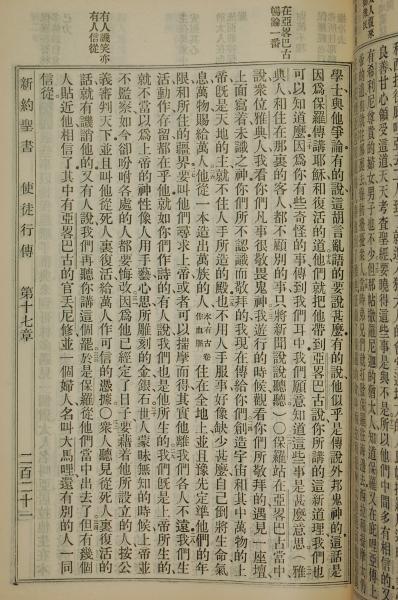 良善甘心領受這道天天考查聖經要曉得這些事是與不是所以他們中間多有相信的又
有希利尼尊貴的婦女男子也不少但那帖撒羅尼迦的猶太人知道保羅又在庇哩亞傳上
在亞畧巴古
暢論一番
學士與他爭論有的說這胡言亂語的要說甚麼有的說他似乎是傳說外邦鬼神的這話是
因爲保羅傳講耶穌和復活的道他們就把他帶到亞畧巴古說你所講的這新道理我們也
可以知道麼因爲你有些奇怪的事傳到我們耳中我們願意知道這些事是甚麼意思(雅
典人和住在那裏的客人都不顧別的事只將新聞說說聽聽)○保羅站在亞畧巴古當中
說衆位雅典人我看你們凡事很敬畏鬼神我遊行的時候觀看你們所敬拜的遇見一座壇
上面寫着未識之神你們所不認識而敬拜的我現在傳給你們創造宇宙和其中萬物的上
帝旣是天地的主就不住人手所造的殿也不用人手服事好像缺少甚麼自己倒將生命氣
息萬物賜給萬人他從一本造出萬族的人本有古卷作血脈住在全地上並且豫先定準他們的年
限和所住的疆界要叫他們尋求上帝或者可以揣摩而得其實他離我們各人不遠我們生
活動作存留都在乎他就如你們作詩的有人說我們也是他所生的我們旣是上帝所生的
就不當以爲上帝的神性像人用手藝心思所雕刻的金銀石世人蒙昧無知的時候上帝並
不監察如今卻吩咐各處的人都要悔改因爲他已經定了日子要藉着他所設立的人按公
義審判天下並且叫他從死人裏復活給萬人作可信的憑據○衆人聽見從死人裏復活的
有人譏笑亦
有人信從
話就有譏誚他的又有人說我們再聽你講這個罷於是保羅從他們當中出去了但有幾個
人貼近他相信了其中有亞畧巴古的官丟尼修並一個婦人名叫大馬哩還有別的人一同
信從
新約聖書 使徒行傳 第十七章 二百二十二